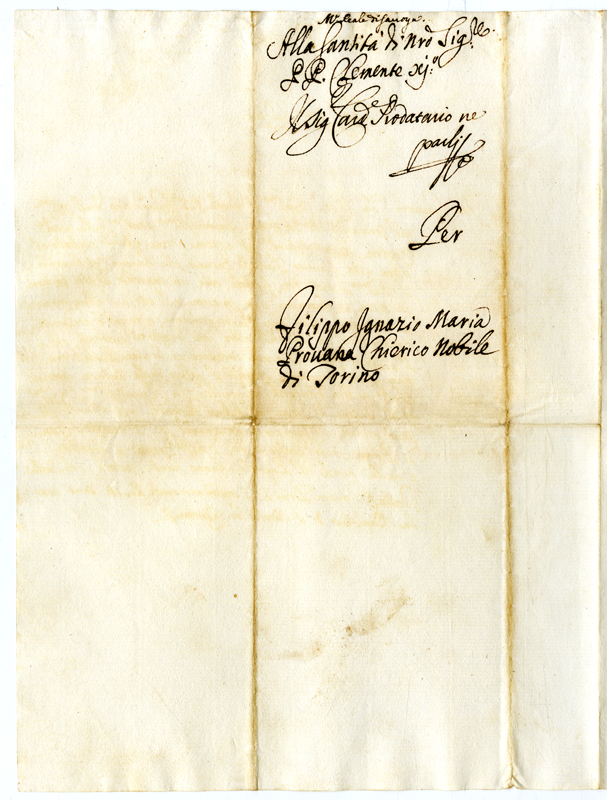 Mta. Reale di Savoya.
Alla Santità di Nrõ Sigre.
P. P. Clemente XI.º
Il Sig Card.e Prodatario ne
parli
Per
Filippo Ignazio Maria
Provana Chierico Nobile
di Torino